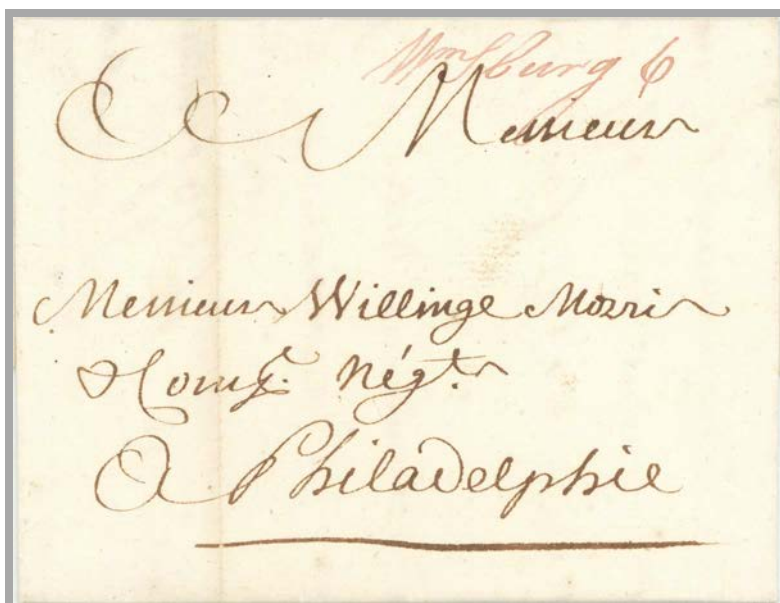 Wmsburg 6
A Messieurs
Messieurs Willinge Morris
& Compe. Négts
A Philadelphie